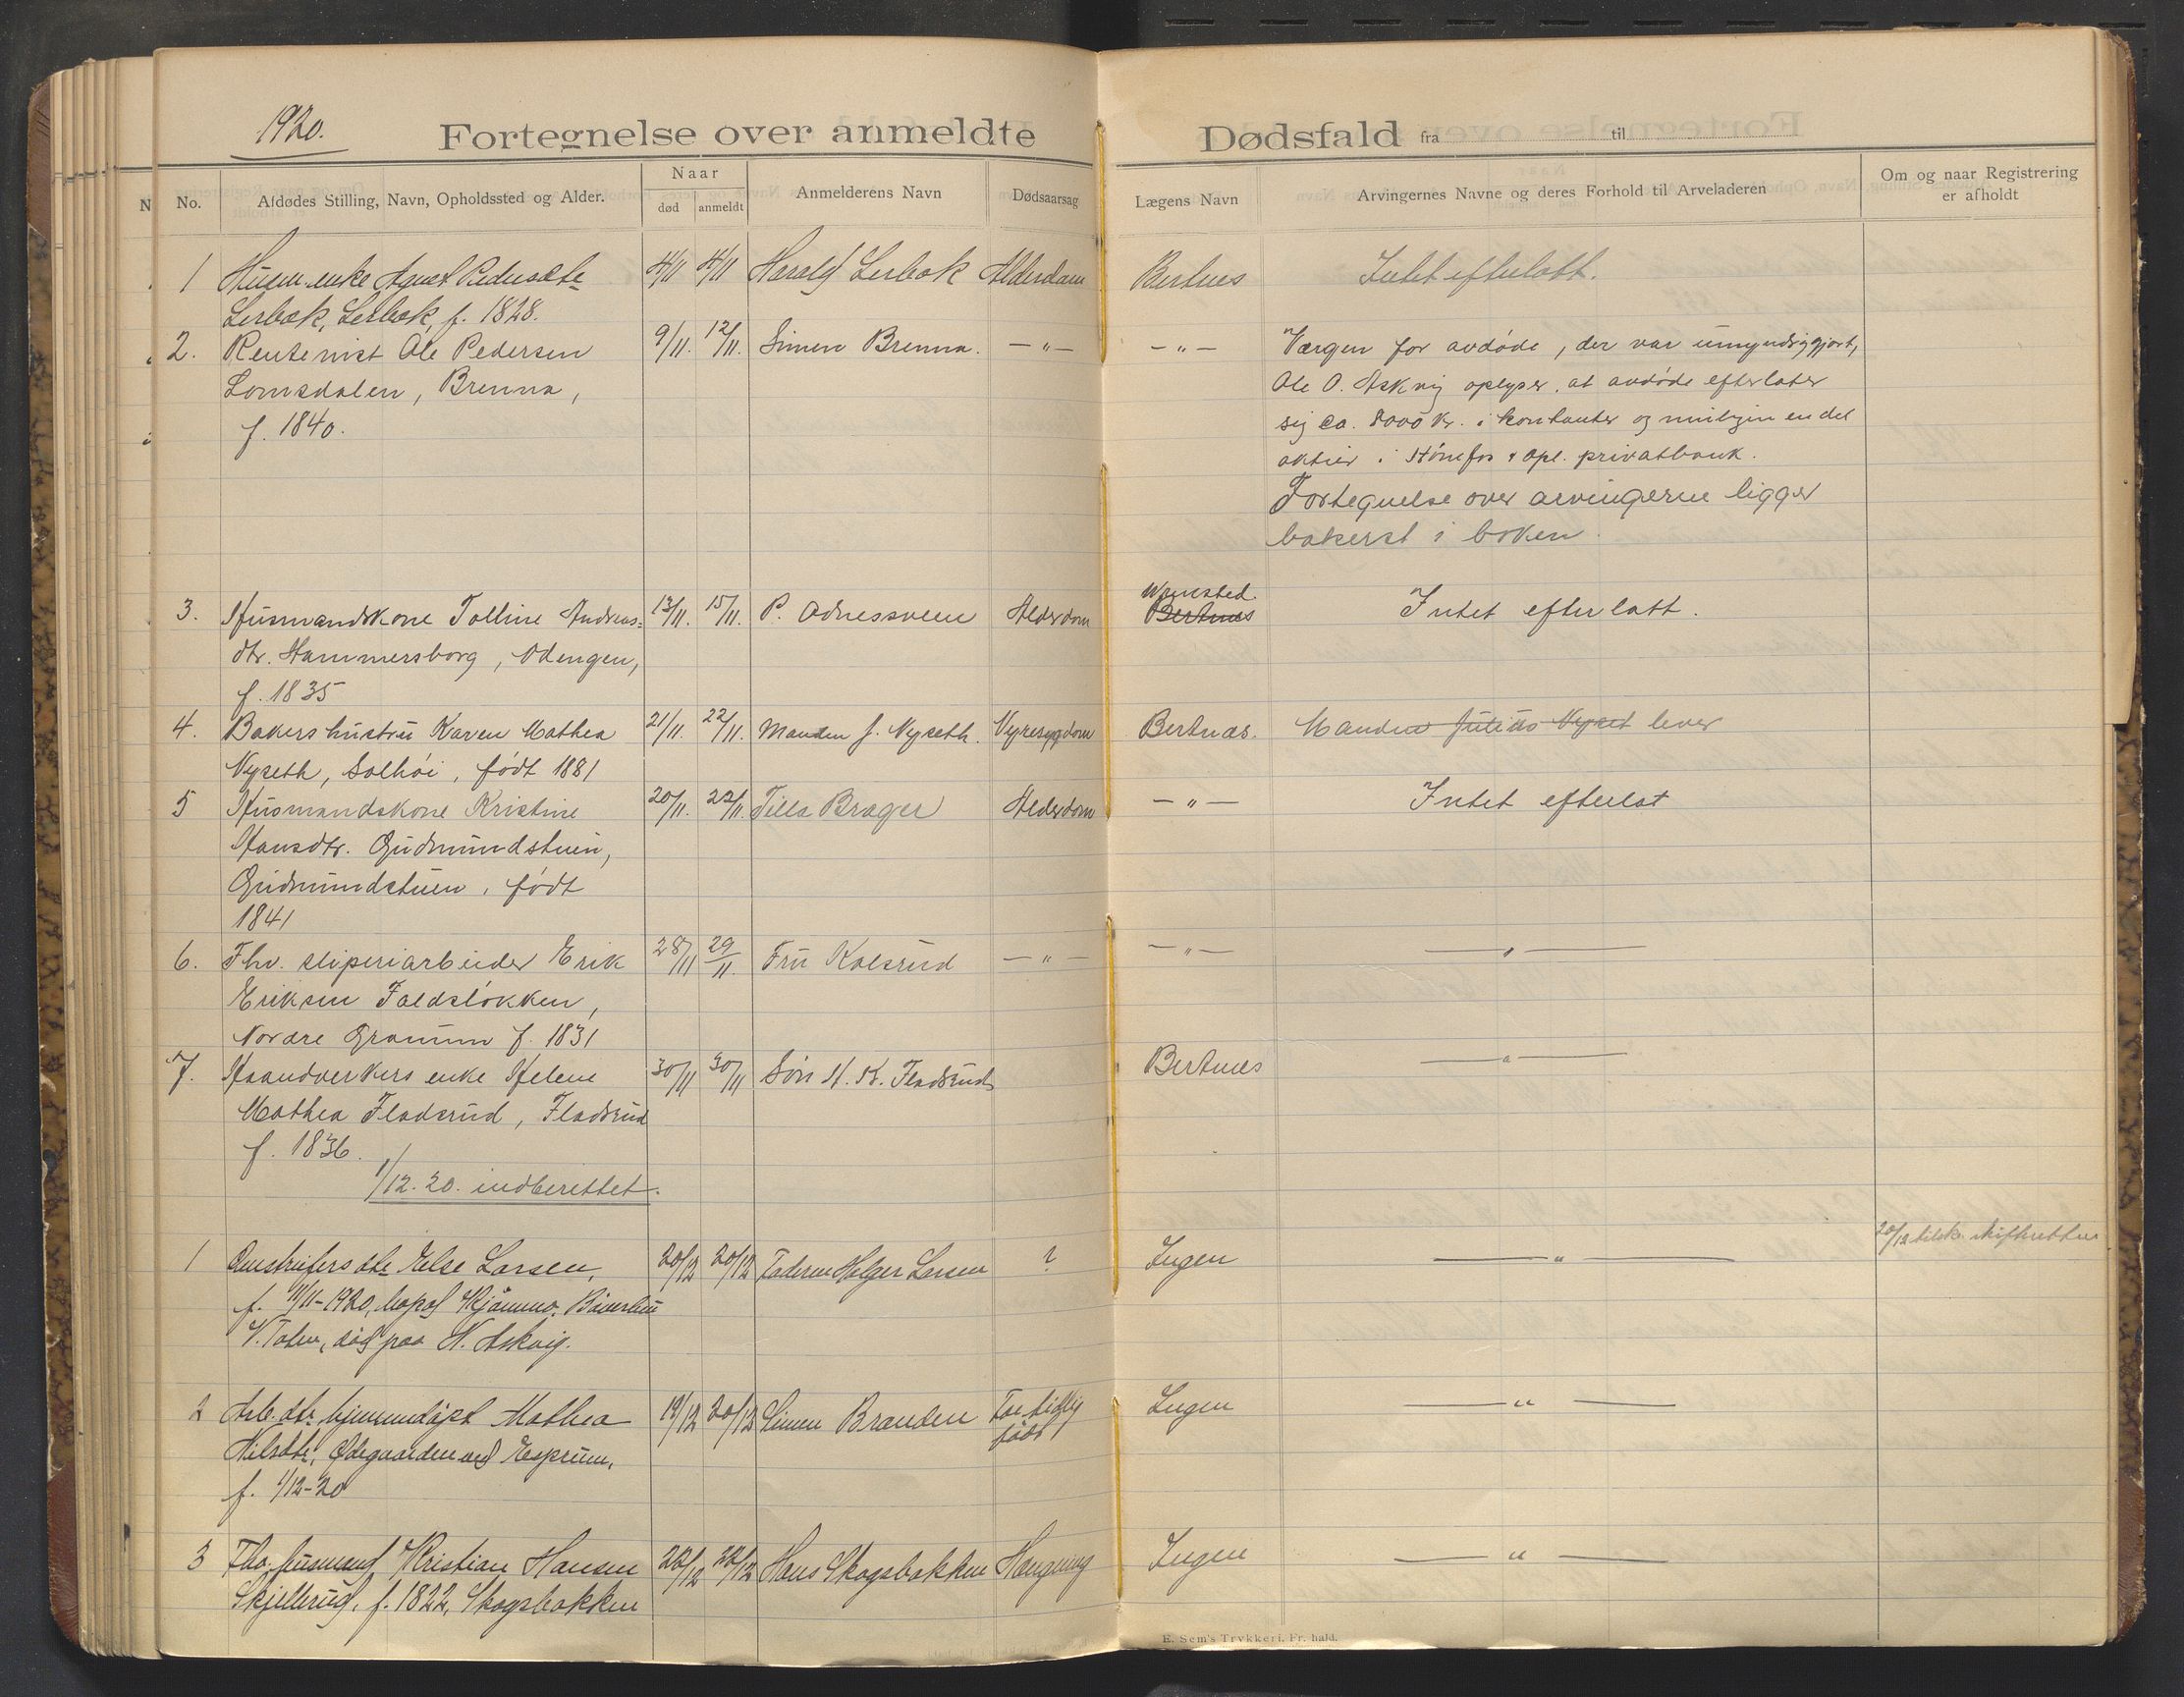 1920.
Fortegnelse over anmeldte Dødsfald fra til
No.
Afdødes Stilling, Navn, Opholdssted og Alder.
Naar
død
anmeldt
Anmelderens Navn
Dødsaarsag
Lægens Navn
Arvingernes Navne og deres Forhold til Arveladeren
Om og naar Registrering
er afholdt
1 Husm.enke Agnet Pedersdtr 4/11 4/11 Harald Lerbak Alderdom Bertnes Intet efterlatt.
Lerbak, Lerbak, f. 1828.
2. Rentenist Ole Pedersen 9/11. 12/11. Simen Brenna. — " — — " — Værgen for avdøde, der var umyndiggjort,
Lomsdalen, Brenna, Ole O. Askvig oplyser, at avdøde efterlater
f. 1840. sig ca. 8000 kr. i kontanter og muligin en del
aktier i Hönefos & Opl. privatbank.
Fortegnelse over arvingerne ligger
bakerst i boken.
Wamsted.
3. Husmandskone Polline Andreas= 13/11. 15/11. P. Odnessveen Alderdom Bertnes Intet efterlatt.
dtr. Hammersborg, Odengen,
f. 1835
4. Bakers hustru Karen Mathea 21/11. 22/11. Manden J. Nyseth. Nyresygdom Bertnes. Manden Julius Nyset lever
Nyseth, Solhöi, födt 1881
5 Husmandskone Kristine 20/11. 22/11. Tilla Brager Alderdom — " — Intet efterlat
Hansdtr. Gudmundstuen,
Gudmundstuen, födt
1841
6. Fhv. sliperiarbeider Erik 28/11 29/11. Fru Kolsrud — " — — " — — " —
Eriksen Faldslökken,
Nordre Granum f. 1831
7. Haandverkers enke Helene 30/11 30/11 Sön H. K. Fladsrud Bertnes — " —
Mathea Fladsrud, Fladsrud
f. 1836.
1/12. 20. indberettet.
20/12 tilsk. skifteretten
1 dtr Else Larsen, 20/12 20/12 Faderen Holger Larsen ? Ingen — " —
f. 11/11-1920, bopæl Kjömmo, Böverbru
V. Toten, död paa N. Askvig.
2 Arb. dtr. hjemmedöpt Mathea 19/12 20/12 Simen Branden For tidlig Ingen — " —
Nilsdtr, Ødegaarden ved Esprum, födt
f. 1/12-20
3 Fhv. husmand Kristian Hansen 22/12 22/12 Hans Skogsbakken Hængning Ingen — " —
Skjellerud, f. 1822, Skogsbakken
E. Sem's Trykkeri, Fr. hald.